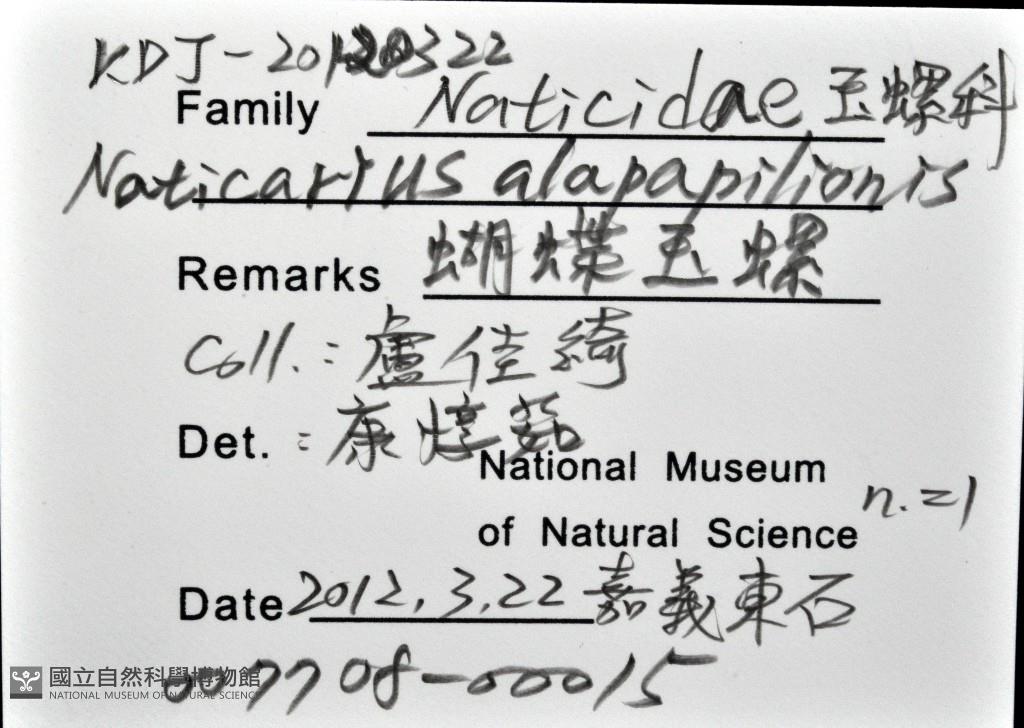 KDJ-20120322
Family Naticidae 玉螺科
Naticarius alapapilionis
Remarks 蝴蝶玉螺
Coll.: 盧佳綺
Det.: 康惇茹
National Museum
of Natural Science n.=1
Date 2012.3.22 嘉義東石
007708-00015
國立自然科學博物館
NATIONAL MUSEUM OF NATURAL SCIENCE